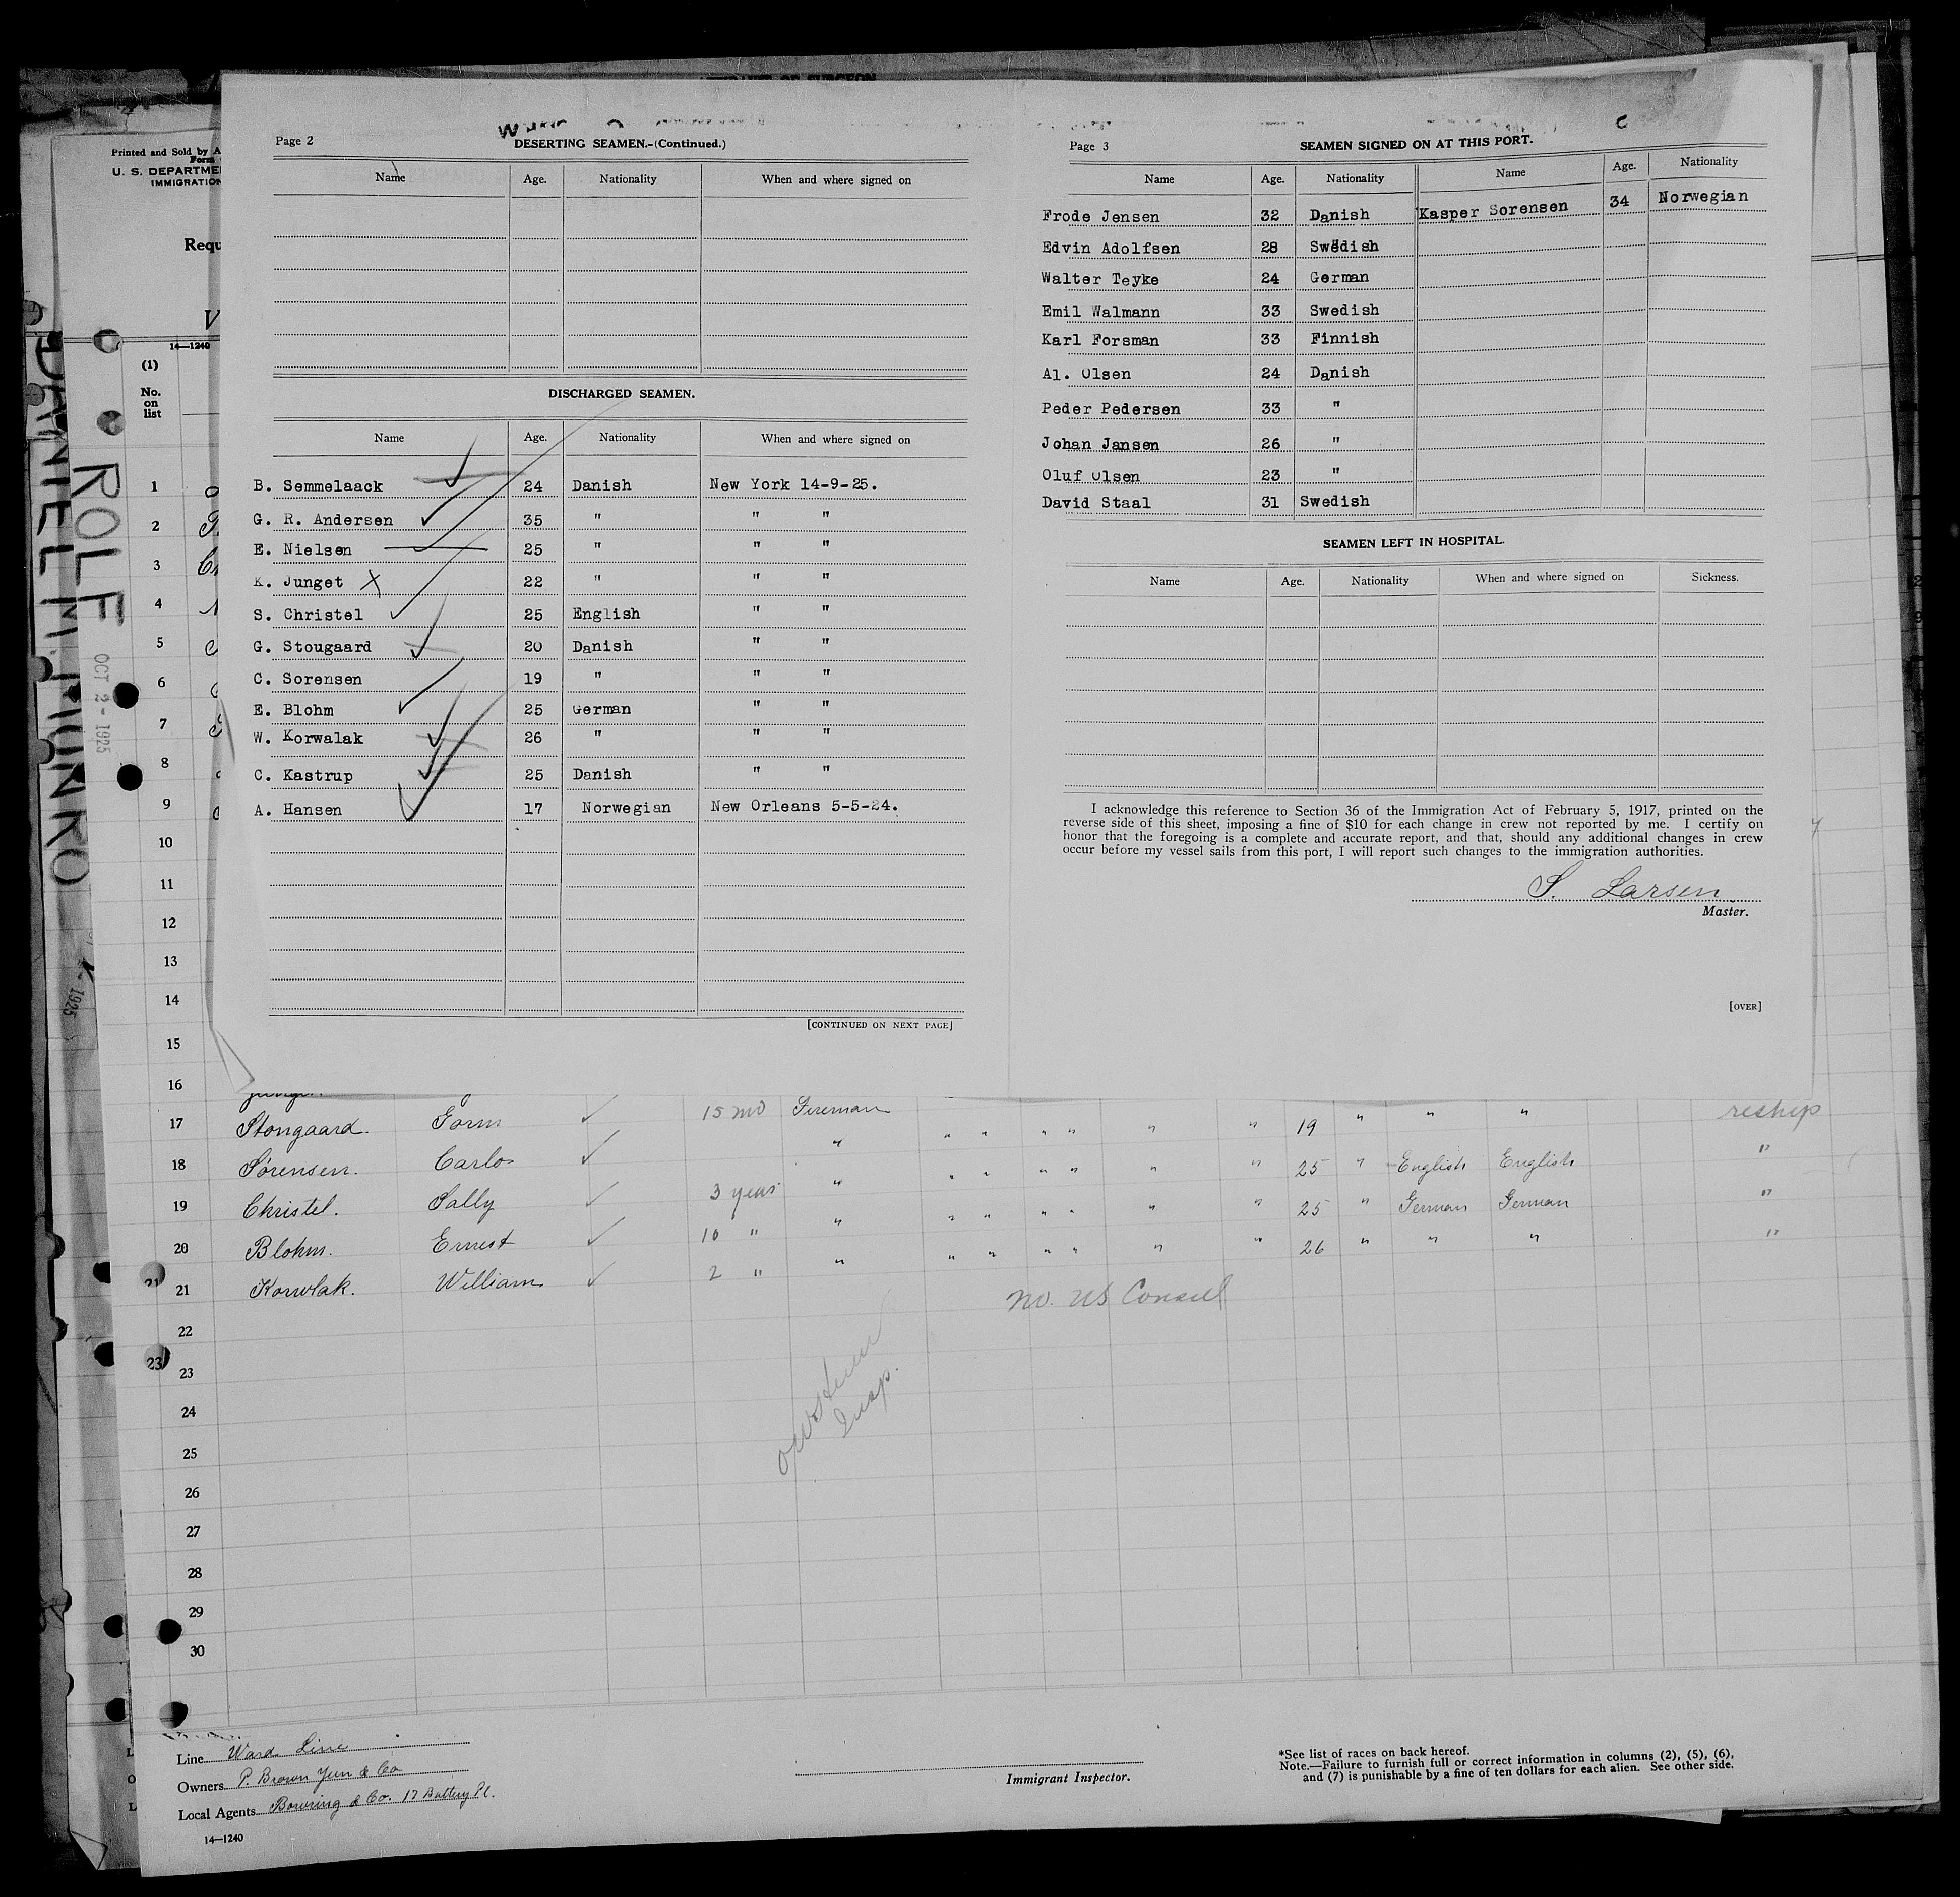 Page 2
DESERTING SEAMEN.-(Continued.)
Name Age. Nationality When and where signed on
DISCHARGED SEAMEN.
Name Age. Nationality When and where signed on
B. Semmelaack 24 Danish New York 14-9-25.
G. R. Andersen 35 " " "
E. Nielsen 25 " " "
K. Junget X 22 " " "
S. Christel 25 English " "
G. Stougaard 20 Danish " "
C. Sorensen 19 " " "
E. Blohm 25 German " "
W. Korwalak 26 " " "
C. Kastrup 25 Danish " "
A. Hansen 17 Norwegian New Orleans 5-5-24.
[CONTINUED ON NEXT PAGE]
Page 3
SEAMEN SIGNED ON AT THIS PORT.
Name Age. Nationality Name Age. Nationality
Frode Jensen 32 Danish Kasper Sorensen 34 Norwegian
Edvin Adolfsen 28 Swedish
Walter Teyke 24 German
Emil Walmann 33 Swedish
Karl Forsman 33 Finnish
Al. Olsen 24 Danish
Peder Pedersen 33 "
Johan Jansen 26 "
Oluf Olsen 23 "
David Staal 31 Swedish
SEAMEN LEFT IN HOSPITAL.
Name Age. Nationality When and where signed on Sickness.
I acknowledge this reference to Section 36 of the Immigration Act of February 5, 1917, printed on the
reverse side of this sheet, imposing a fine of $10 for each change in crew not reported by me. I certify on
honor that the foregoing is a complete and accurate report, and that, should any additional changes in crew
occur before my vessel sails from this port, I will report such changes to the immigration authorities.
S. Larsen
Master.
[OVER]
Printed and Sold by A
Form
U. S. DEPARTME
IMMIGRATION
Requ
V
14—1240
(1)
No.
on
list
DANIEL MUNRO
ROLF
OCT 2 - 1925
1925
1
2
3
4
5
6
7
8
9
10
11
12
13
14
15
16
17 Stongaard. Gorm 15 mo Fireman " " " " " " 19 " " " reship
18 Sørensen. Carlo " " " " " " " 25 " English English "
19 Christel. Sally 3 years " " " " " " " 25 " German German "
20 Blohm. Ernest 10 " " " " " " " " 26 " " " "
21 21 Korwlak. William 2 " "
no. US Consul
22
23 23
24
Insp.
25
26
27
28
29
30
Line Ward Line
Owners P. Brown Jun & Co
Local Agents Bowring & Co. 17 Battery Pl.
14—1240
Immigrant Inspector.
*See list of races on back hereof.
Note.—Failure to furnish full or correct information in columns (2), (5), (6),
and (7) is punishable by a fine of ten dollars for each alien. See other side.